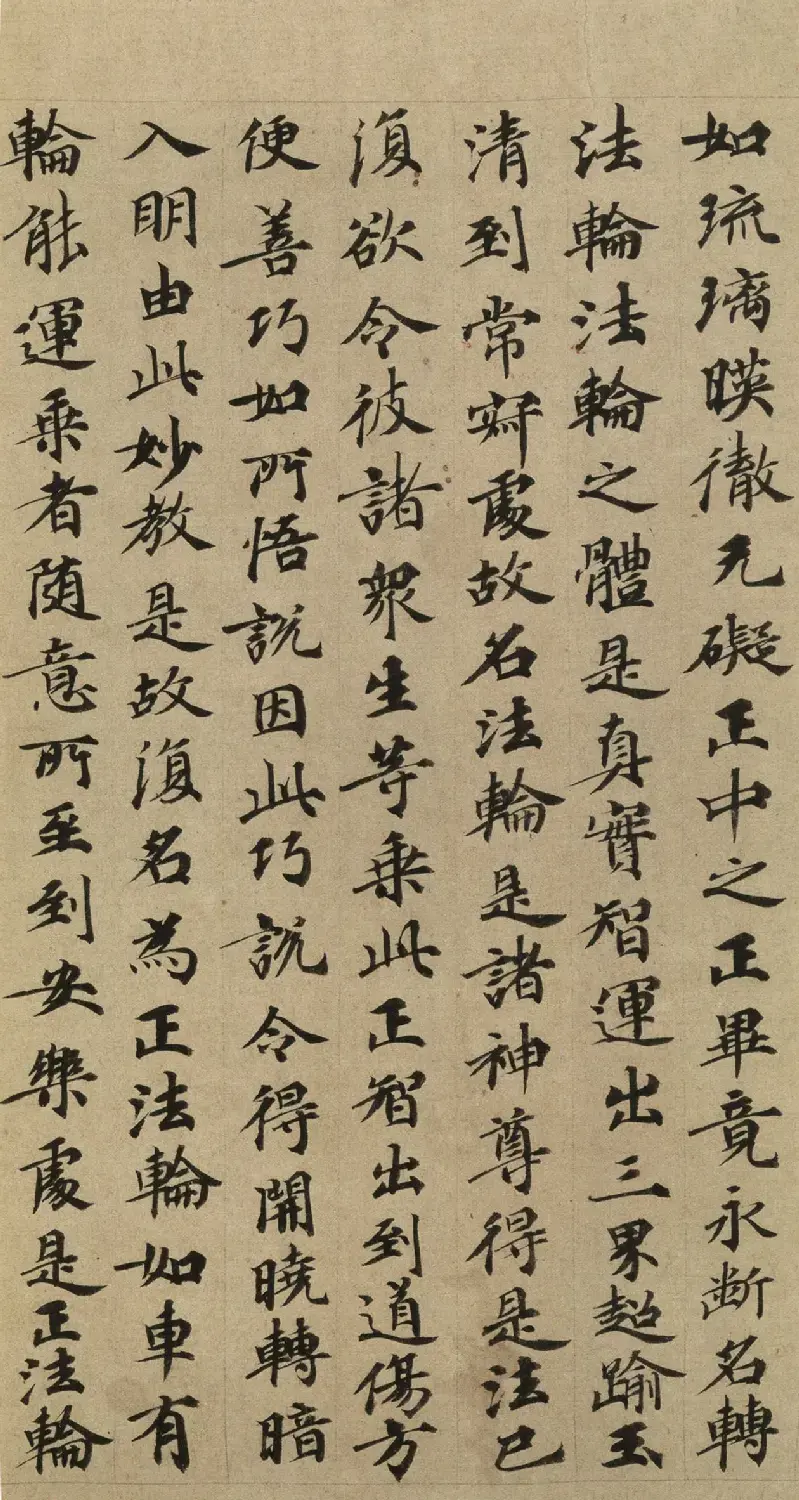 如琉璃暎徹无礙正中之正畢竟永斷名轉
法輪法輪之體是真實智運出三界超踰玉
清到常寂處故名法輪是諸神尊得是法已
復欲令彼諸眾生等乗此正智出到道傷方
便善巧如所悟說因此巧說令得開曉轉暗
入明由此妙教是故復名為正法輪如車有
輪能運乗者随意所至到安樂處是正法輪